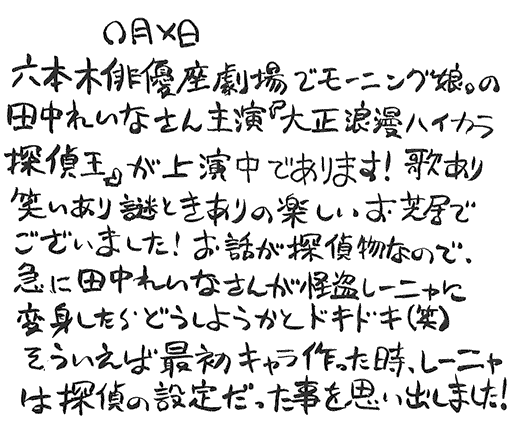 ○月×日
六本木俳優座劇場でモーニング娘。の
田中れいなさん主演『大正浪漫ハイカラ
探偵王』が上演中であります!歌あり
笑いあり謎ときありの楽しいお芝居で
ございました!お話が探偵物なので、
急に田中れいなさんが怪盗レーニャに
変身したらどうしようかとドキドキ(笑)
そういえば最初キャラ作った時、レーニャ
は探偵の設定だった事を思い出しました!